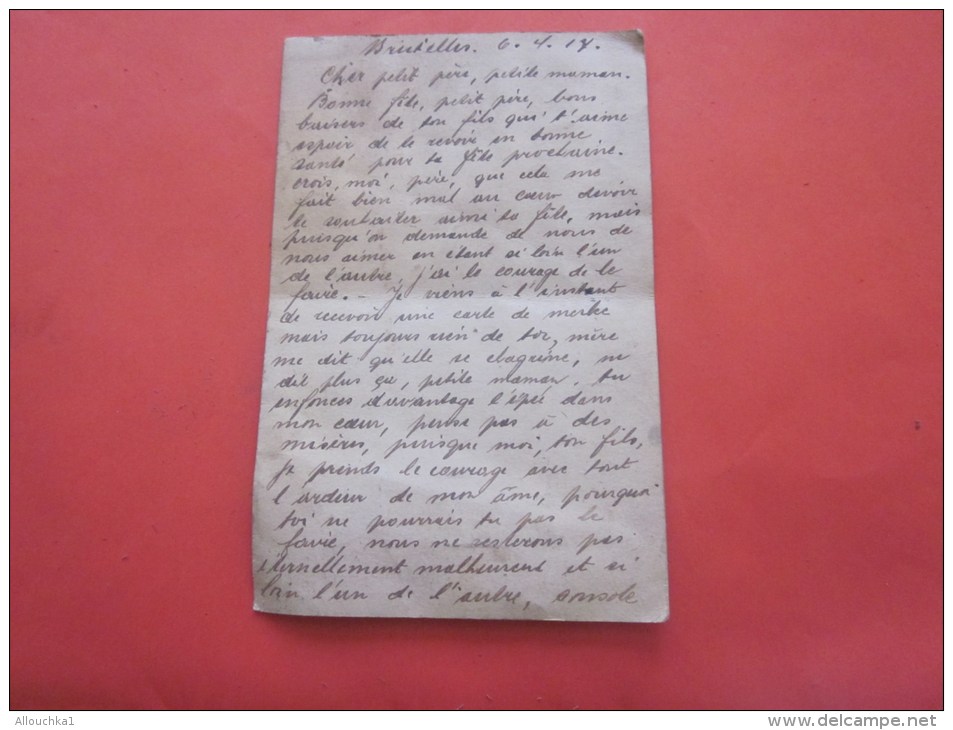 Bruxelles. 6. 4. 17.
Cher petit père, petite maman.
Bonne fête, petit père, bons
baisers de ton fils qui t'aime
espoir de te revoir en bonne
santé pour ta fête prochaine.
crois, moi, père, que cela me
fait bien mal au cœur devoir
te souhaiter ainsi ta fête, mais
puisqu'on demande de nous de
nous aimer en étant si loin l'un
de l'autre, j'ai le courage de le
faire. - Je viens à l'instant
de recevoir une carte de
mais toujours rien de toi, mère
me dit qu'elle se chagrine, ne
dit plus ça, petite maman, tu
enfonces davantage l'épée dans
mon cœur, pense pas à des
misères, puisque moi, ton fils,
je prends le courage avec tout
l'ardeur de mon âme, pourquoi
toi ne pourrais tu pas le
faire, nous ne resterons pas
éternellement malheureux et si
loin l'un de l'autre, console
Allouchka1
www.delcampe.net